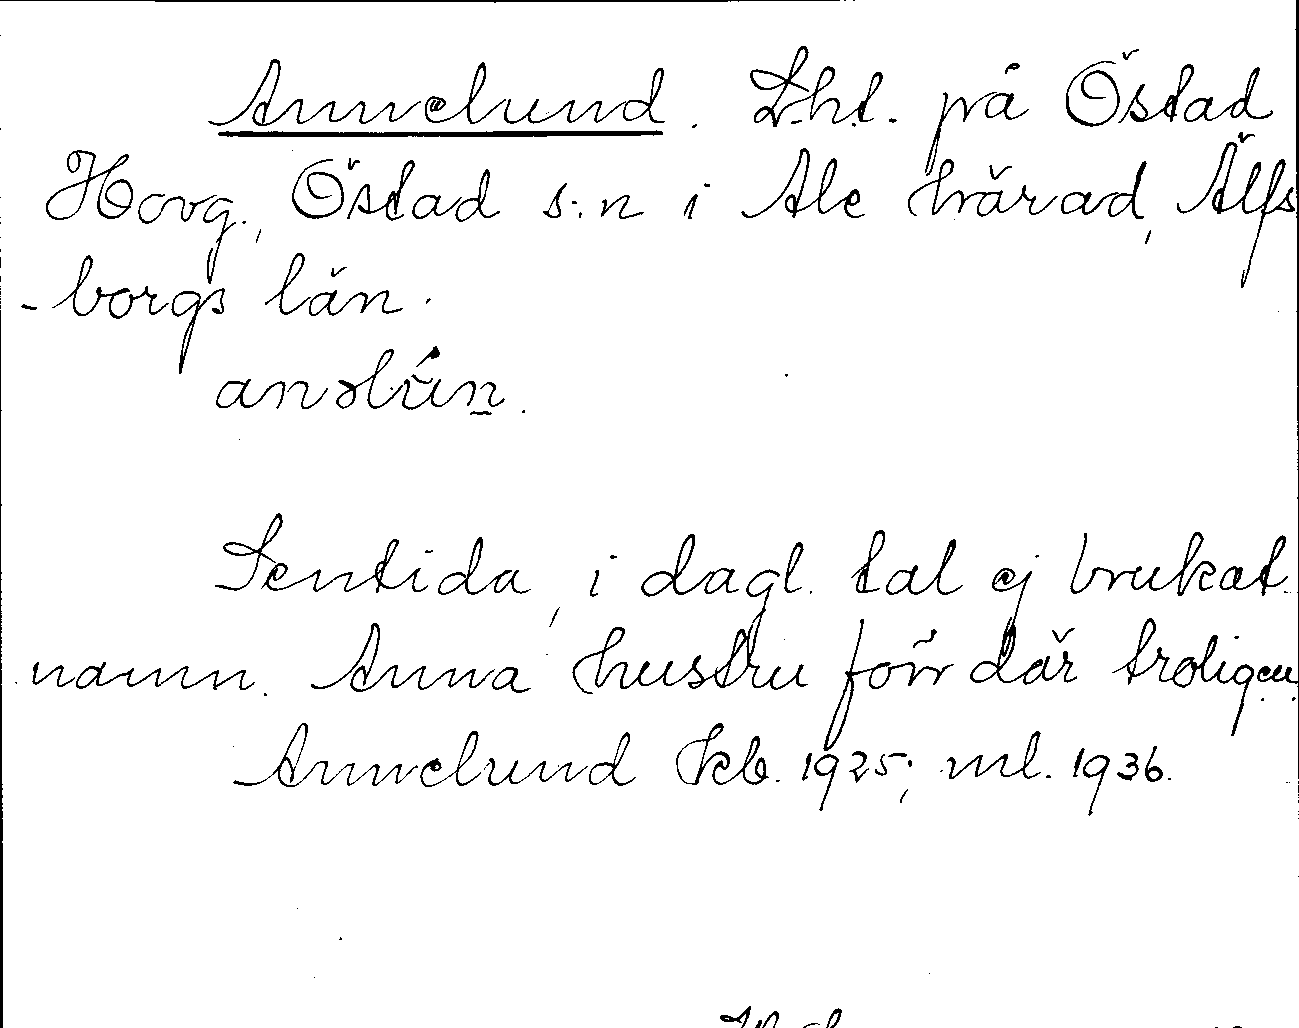 Annelund. Lht. på Östad
Hovg., Östad s:n i Ale härad, Älfs
-borgs län.
Sentida, i dagl. tal ej brukat
namn. Anna hustru förr där troligen.
Annelund kb. 1925; ml. 1936.